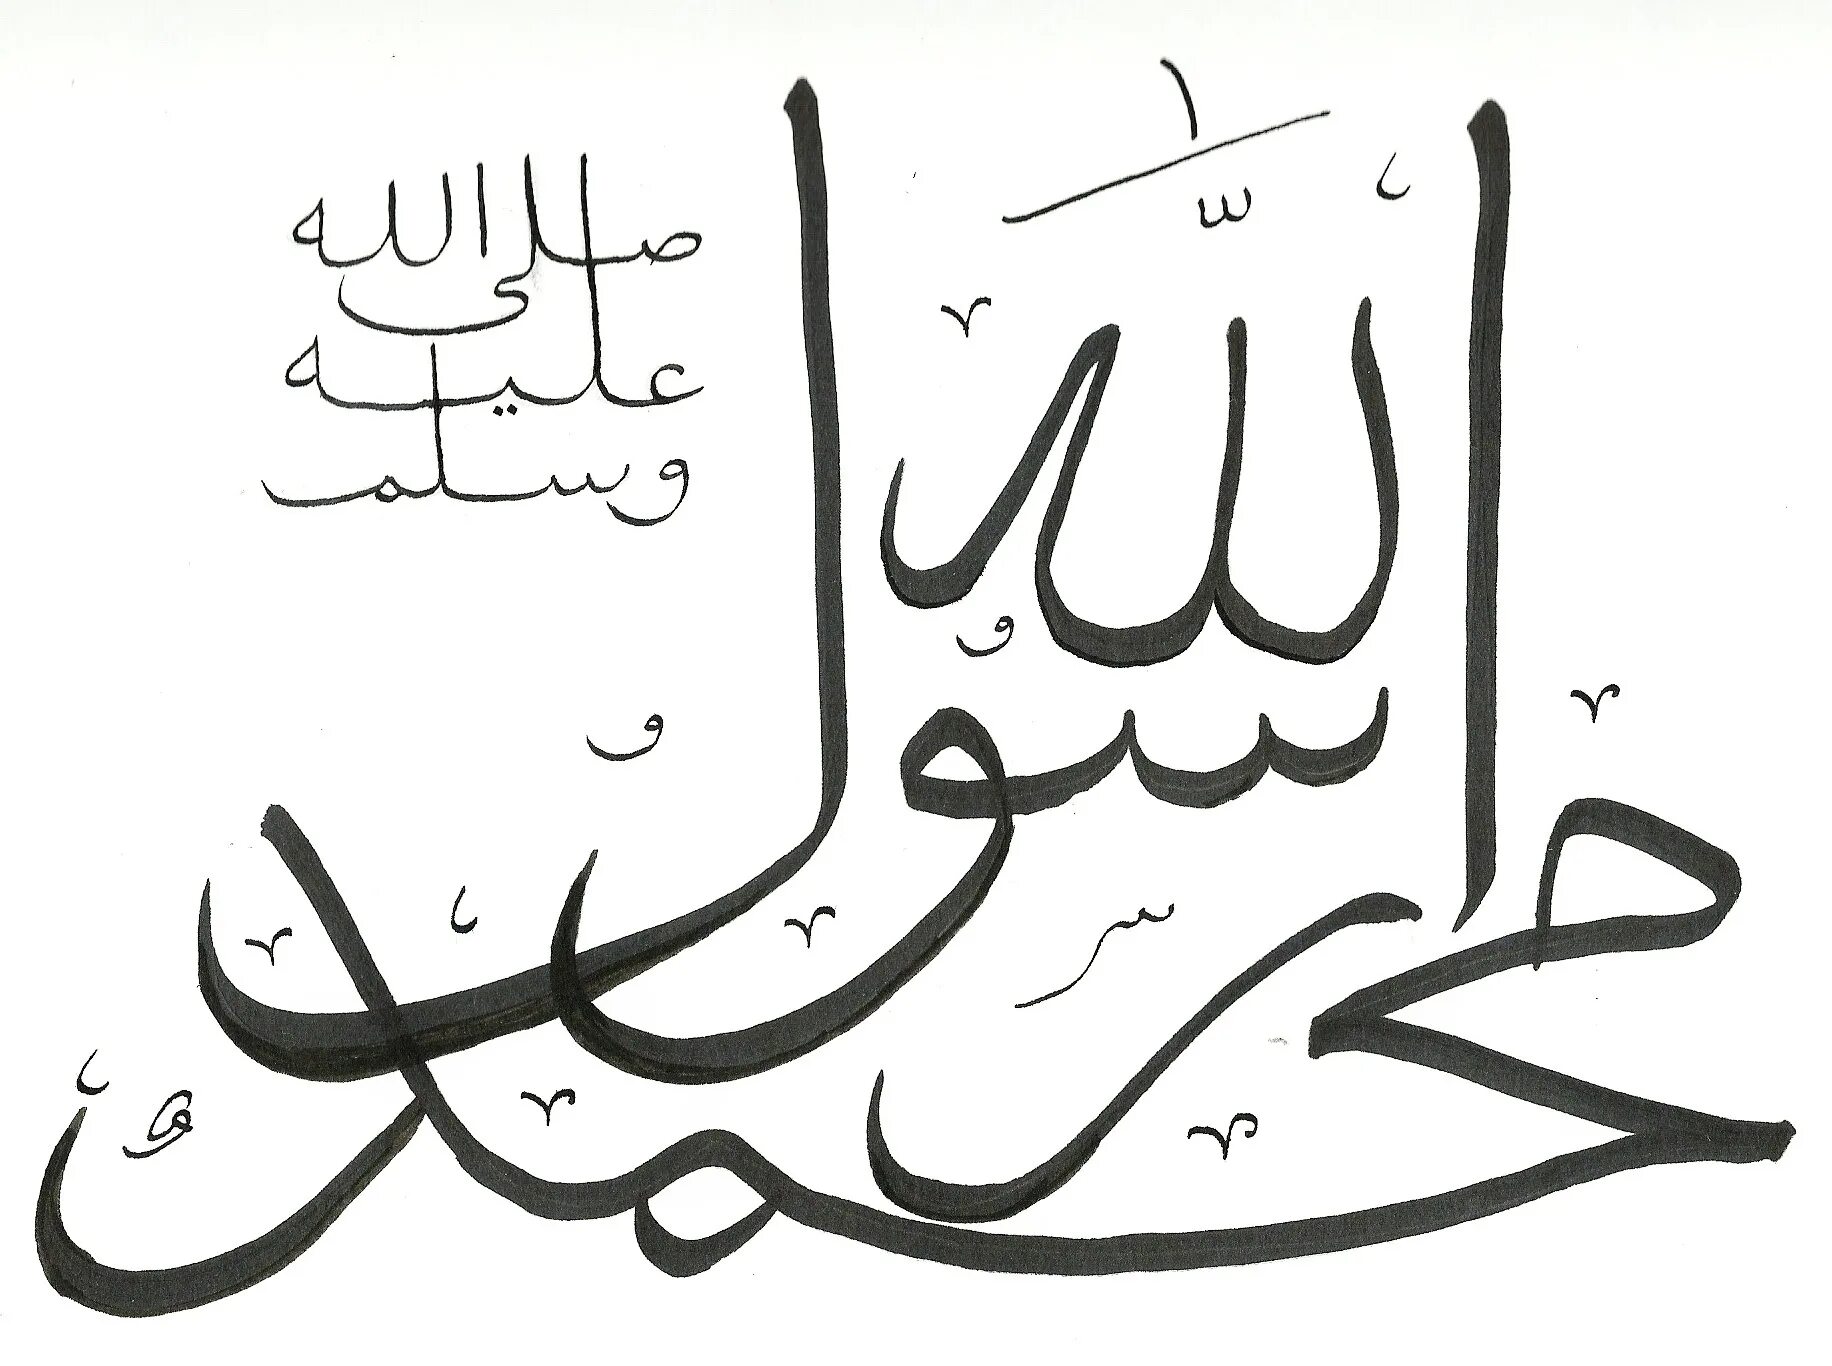 محمد رسول الله
صلى الله
عليه
وسلم